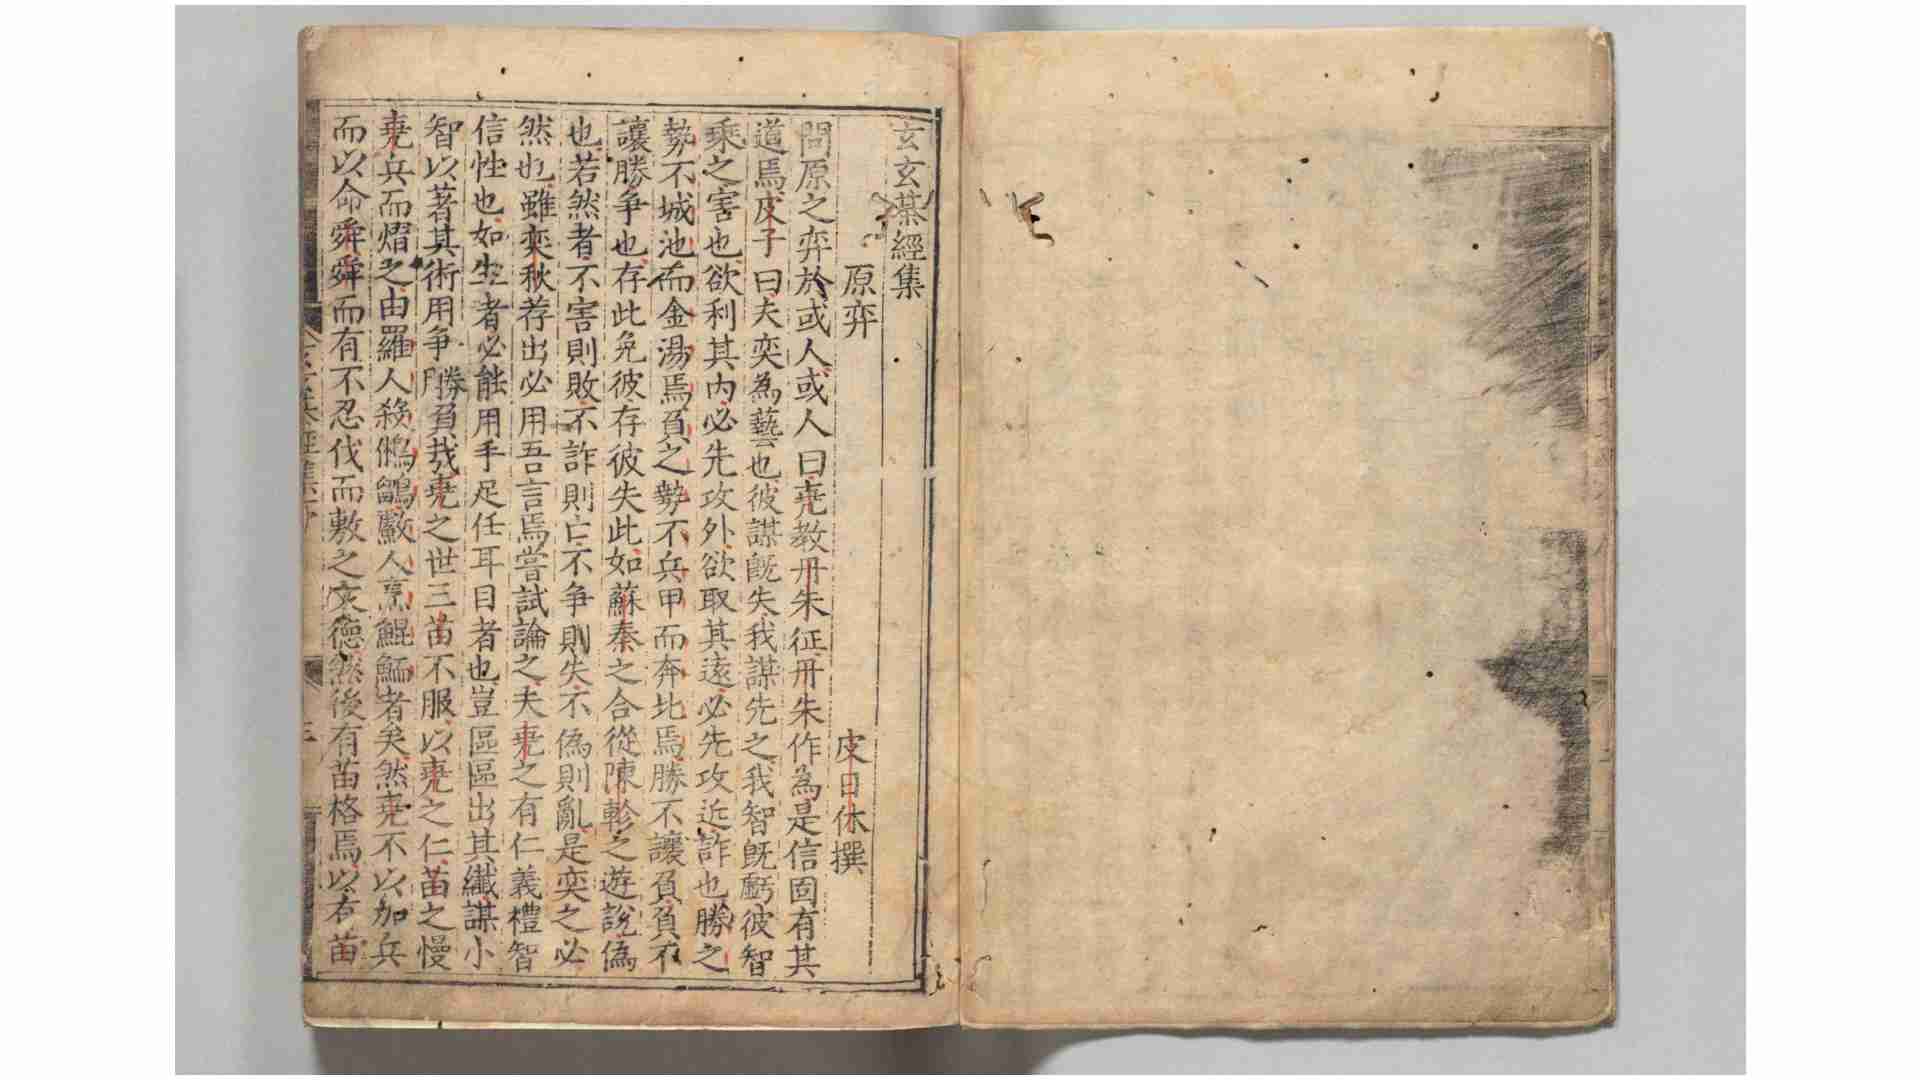 玄玄棊經集
原弈 皮日休撰
問原之弈於或人或人曰堯教丹朱征丹朱作為是信固有其
道焉皮子曰夫奕為藝也彼謀既失我謀先之我智既虧彼智
乘之害也欲利其內必先攻外欲取其遠必先攻近詐也勝之
勢不城池而金湯焉負之勢不兵甲而奔北焉勝不讓負負不
讓勝爭也存此免彼存彼失此如蘇秦之合從陳軫之遊說偽
也若然者不害則敗不詐則亡不爭則失不偽則亂是奕之必
然也雖奕秋荐出必用吾言焉嘗試論之夫堯之有仁義禮智
信性也如生者必能用手足任耳目者也豈區區出其纖謀小
智以著其術用爭勝負哉堯之世三苗不服以堯之仁苗之慢
堯兵而熠之由羅人殺鵂鶹鼵人烹鯤鮞者矣然堯不以加兵
而以命舜舜而有不忍伐而敷之文德然後有苗格焉以有苗